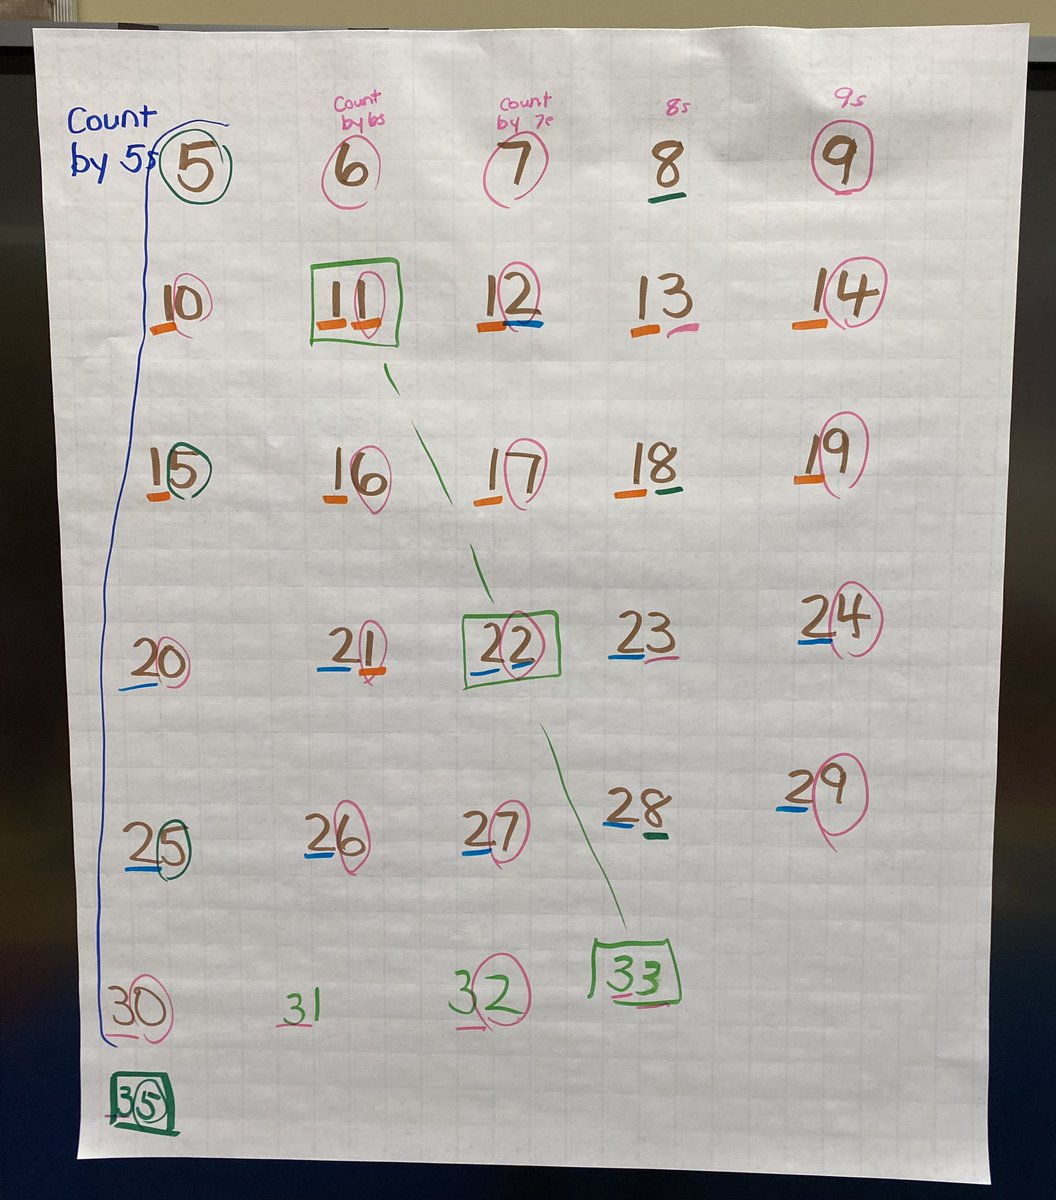 Count
by 5s
Count
by 6s
Count
by 7s
8s
9s
5 6 7 8 9
10 11 12 13 14
15 16 17 18 19
20 21 22 23 24
25 26 27 28 29
30 31 32 33
35